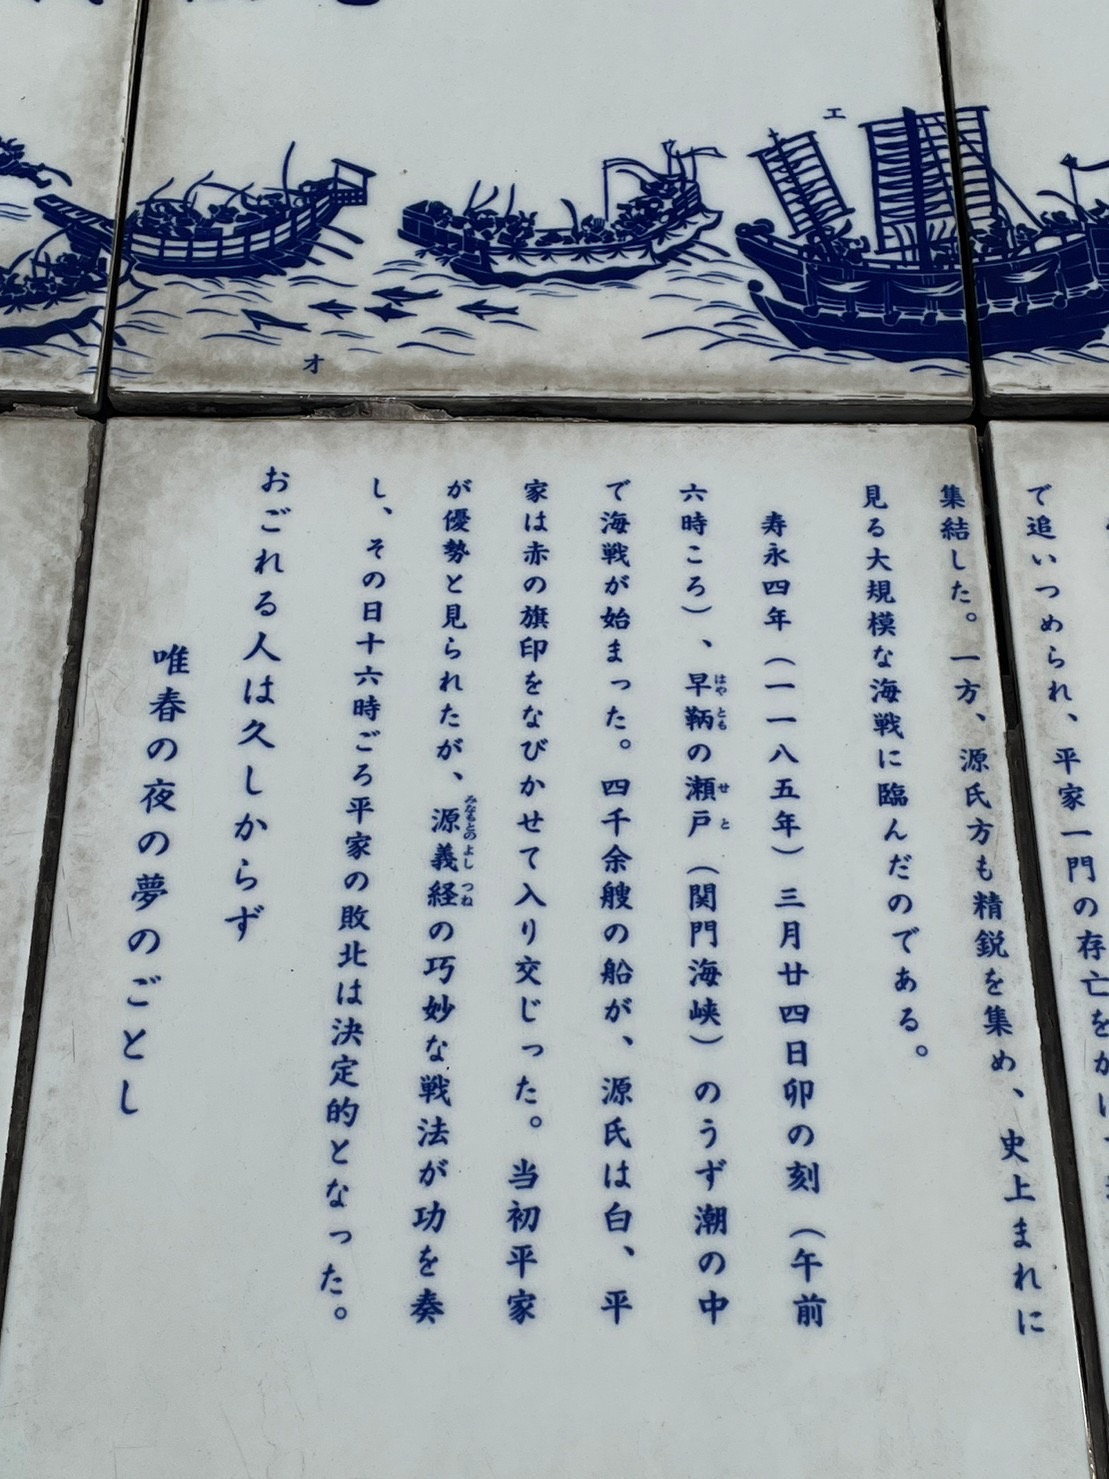 エ
オ
で追いつめられ、平家一門の存亡をかけて
集結した。一方、源氏方も精鋭を集め、史上まれに
見る大規模な海戦に臨んだのである。
寿永四年（一一八五年）三月廿四日卯の刻（午前
六時ころ）、早鞆の瀬戸（関門海峡）のうず潮の中
で海戦が始まった。四千余艘の船が、源氏は白、平
家は赤の旗印をなびかせて入り交じった。当初平家
が優勢と見られたが、源義経の巧妙な戦法が功を奏
し、その日十六時ごろ平家の敗北は決定的となった。
おごれる人は久しからず
唯春の夜の夢のごとし